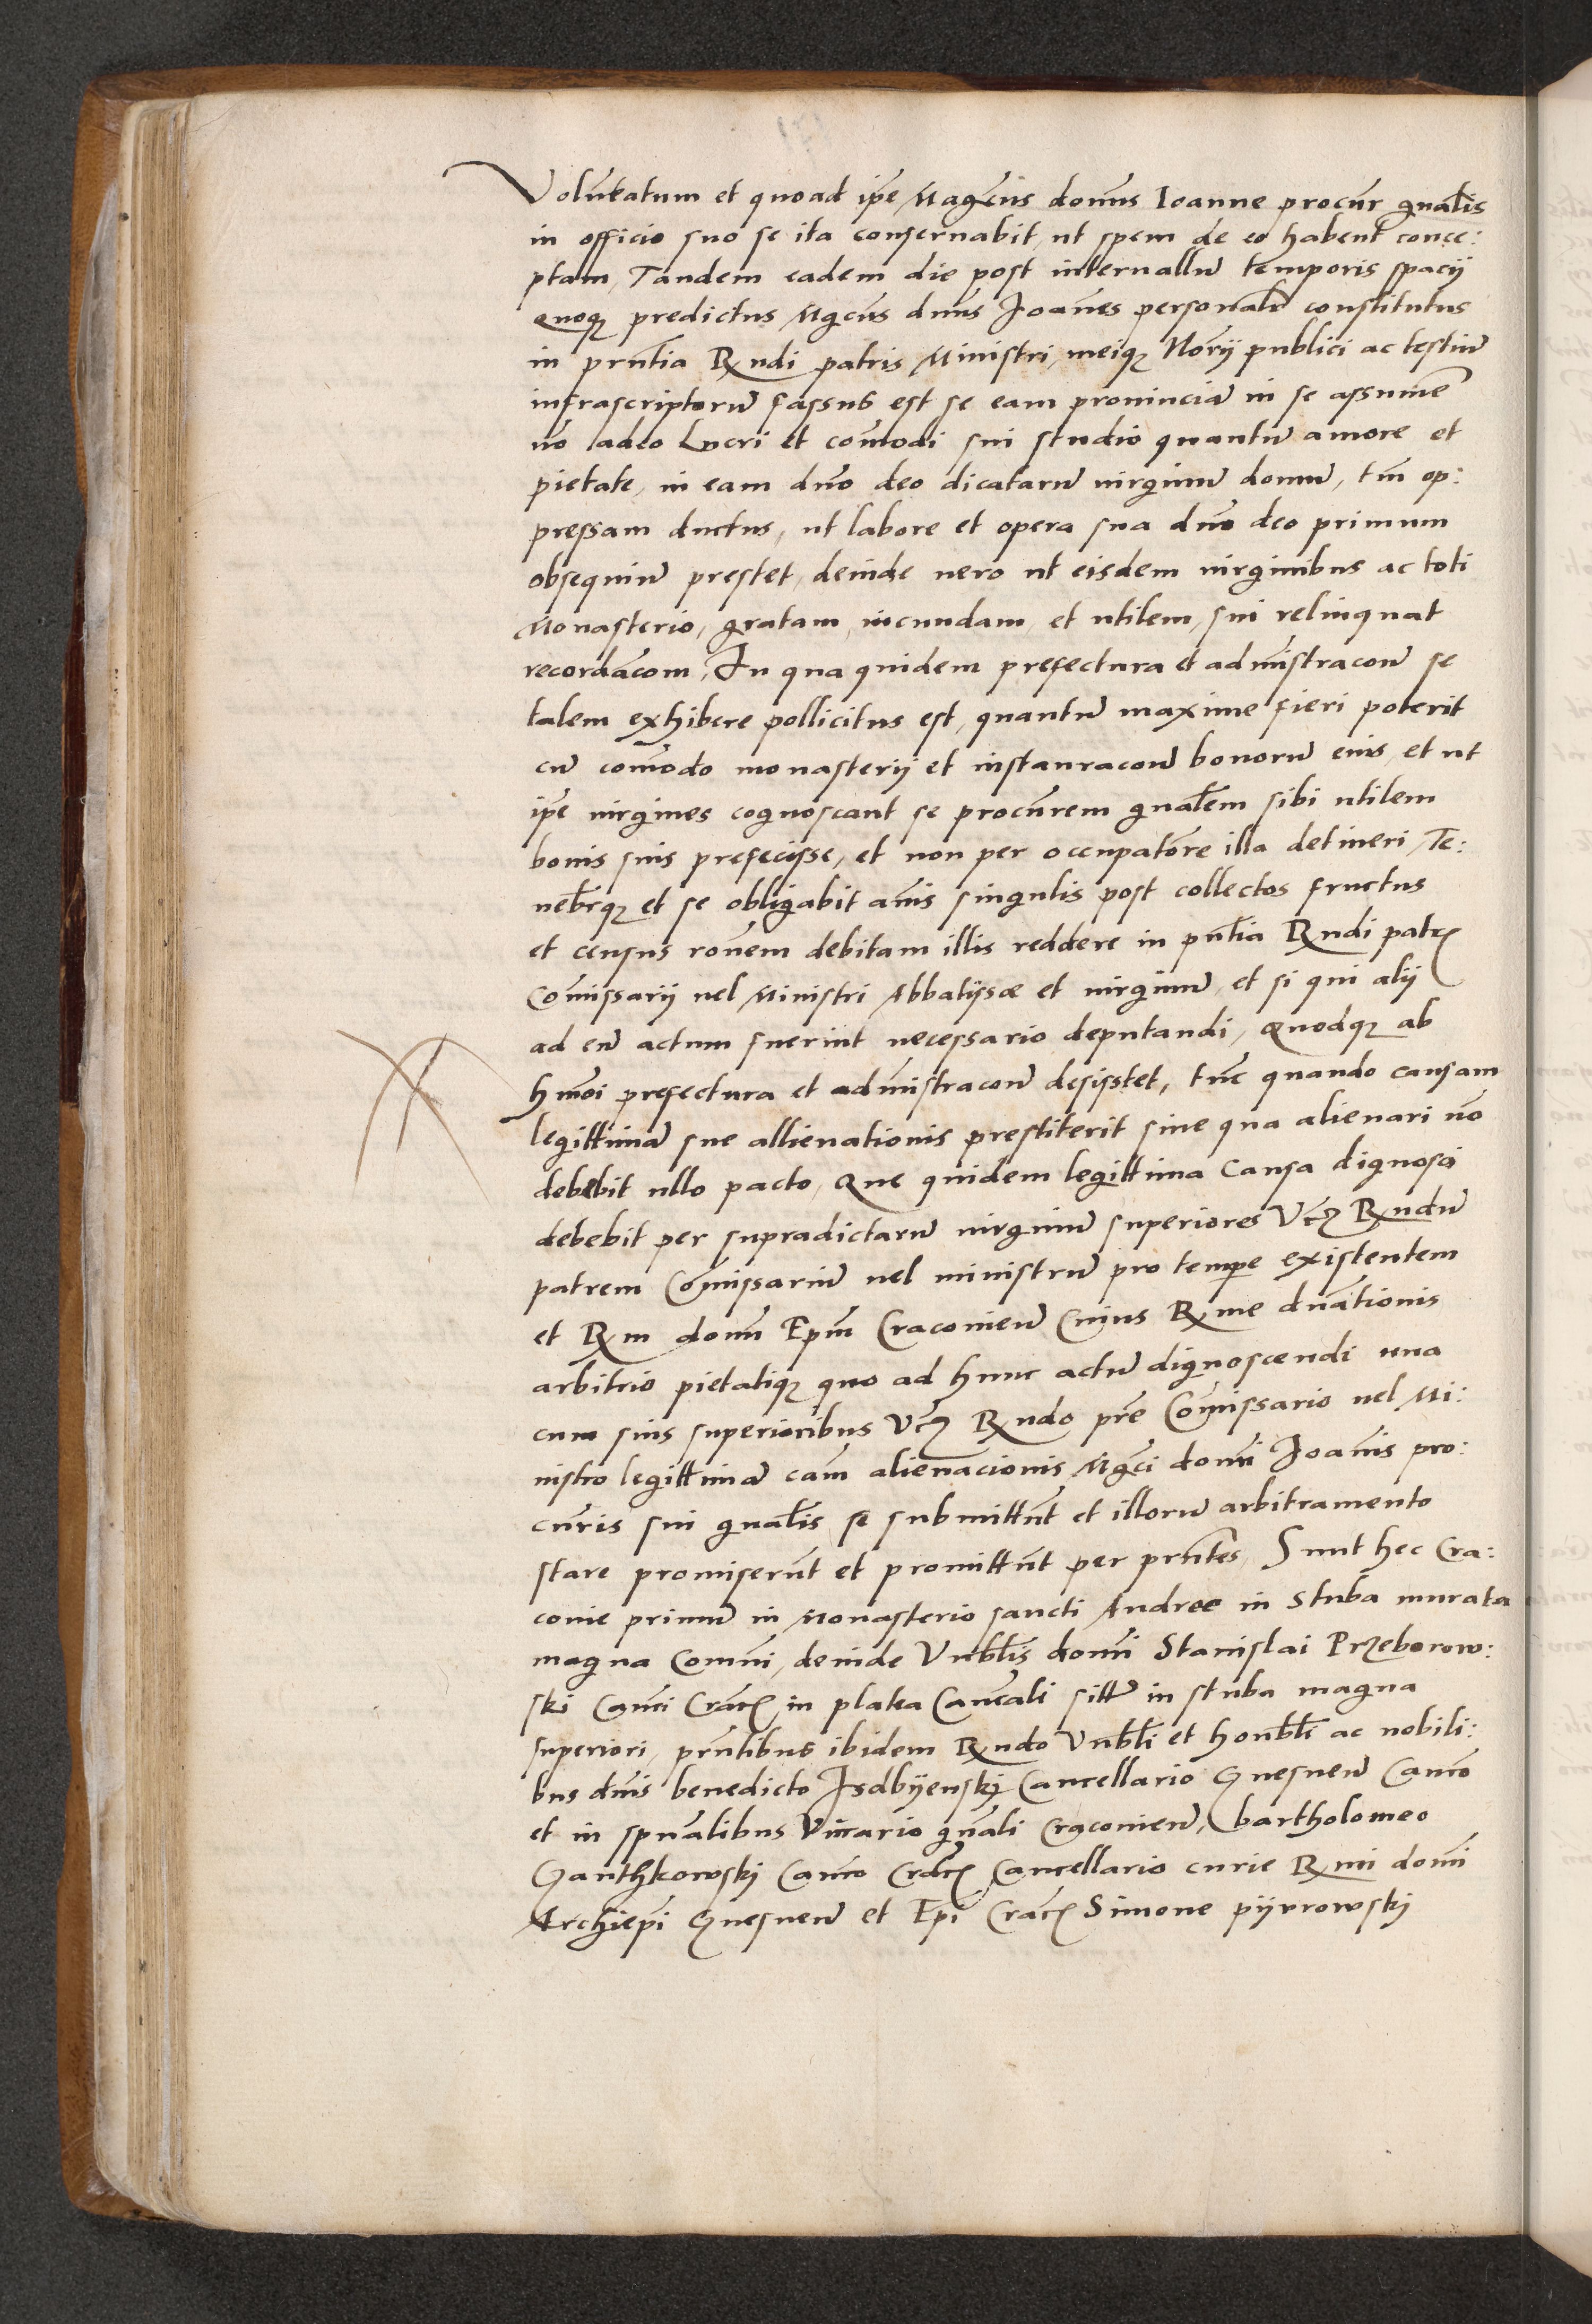 Volu̅tatum et quoad ip̅e Mag̅cus dom̅us Ioanne procu̅r gn̅alis
in officio suo se ita conseruabit, ut spem de eo habent conce:
ptam, Tandem eadem die post interuallu̅ temporis spacij
quoq predictus Mg̅cus dn̅us Joan̅es personalr̅ constitutus
in prn̅tia Rn̅di patris Ministri, meiq Nor̅ij publici ac testiu̅
infrascriptoru̅ fassus est se eam prouincia̅ in se assume̅
no̅ adeo Lucri et com̅odi sui studio quantu̅ amore et
pietate, in eam dn̅o deo dicataru̅ uirginu̅ domu̅, tm̅ op:
pressam ductus, ut labore et opera sua dn̅o deo primum
obsequiu̅ prestet, deinde uero ut eisdem uirginibus ac toti
Monasterio, gratam, iucundam, et utilem, sui relinquat
recorda̅com, In qua quidem prefectura et adm̅istracou̅ se
talem exhibere pollicitus est, quantu̅ maxime fieri poterit
cu̅ com̅odo monasterij et instauracou̅ bonoru̅ eius, et ut
ip̅e uirgines cognoscant se procu̅rem gn̅alem sibi utilem
bonis suis prefecisse, et non per occupato̅re illa detineri, Te:
neb̅rq et se obligabit an̅is singulis post collectos fructus
et census ron̅em debitam illis reddere in pn̅tia Rn̅di patr̅
Com̅issarij uel Ministri Abbatissæ et uirginu̅, et si qui alij
ad eu̅ actum fuerint necessario deputandi, Quodq ab
hm̅oi prefectura et adm̅istracou̅ desistet, tu̅c quando causam
legittima̅ sue allienationis prestiterit sine qua alienari no̅
debebit ullo pacto, Que quidem legittima causa dignosci
debebit per supradictaru̅ uirginu̅ superiores Vcz Rndu̅
patrem Com̅issariu̅ uel ministru̅ pro tempe existentem
et Rm dom̅ Ep̅m Cracouien̅ Cuius Rme dn̅ationis
arbitrio pietatiq quo ad hunc actu̅ dignoscendi una
cum suis superioribus Vcz Rndo pr̅e Com̅issario uel Mi:
nistro legittima̅ cam̅ alienacionis Mg̅ci dom̅i Joan̅is pro:
cu̅ris sui gn̅alis se submittu̅t et illoru̅ arbitramento
stare promiseru̅t et promittu̅t per prn̅tes, Sunt hec Cra:
couie primu̅ in Monasterio sancti Andree in Stuba murata
magna Com̅ni, deinde Vn̅blis dom̅i Stanislai Przeborow:
ski Can̅ci Crac̅ in platea Can̅cali sitt̅ in stuba magna
superiori, prn̅tibus ibidem Rndo Vn̅bli et hon̅bli ac nobili:
bus dn̅is benedicto Jsdbijenskj Cancellario Gnesnen̅ Can̅co
et in spu̅alibus Vicario gn̅ali Cracouien̅, bartholomeo
Ganthkowskj Can̅co Crac̅ Cancellario curie Rmi dom̅i
Archiep̅i Gnesnen̅ et Ep̅i Crac̅ Simone pijvrowskj